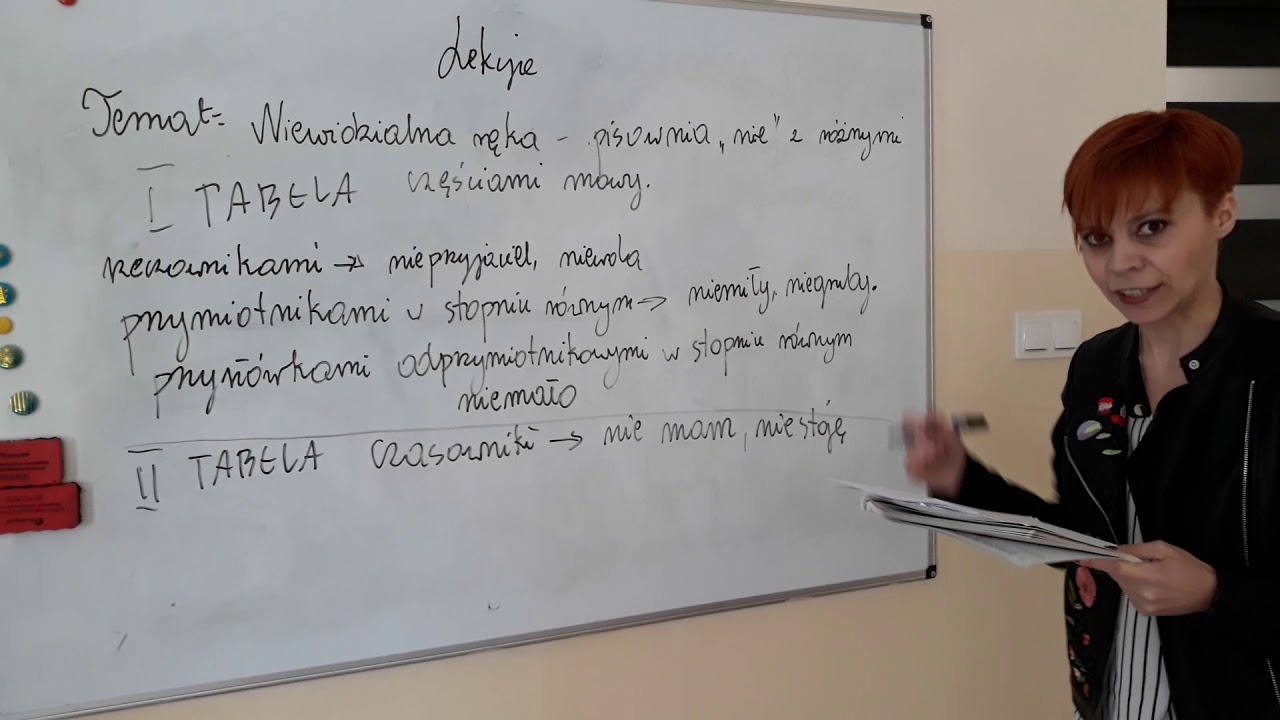 Lekcje
Temat: Niewidzialna ręka - pisownia „nie" z różnymi
częściami mowy.
I TABELA
rzeczownikami → nieprzyjaciel, niewola
przymiotnikami w stopniu równym → niemiły, niegruby.
przysłówkami odprzymiotnikowymi w stopniu równym
niemało
II TABELA czasowniki → nie mam, nie stoję